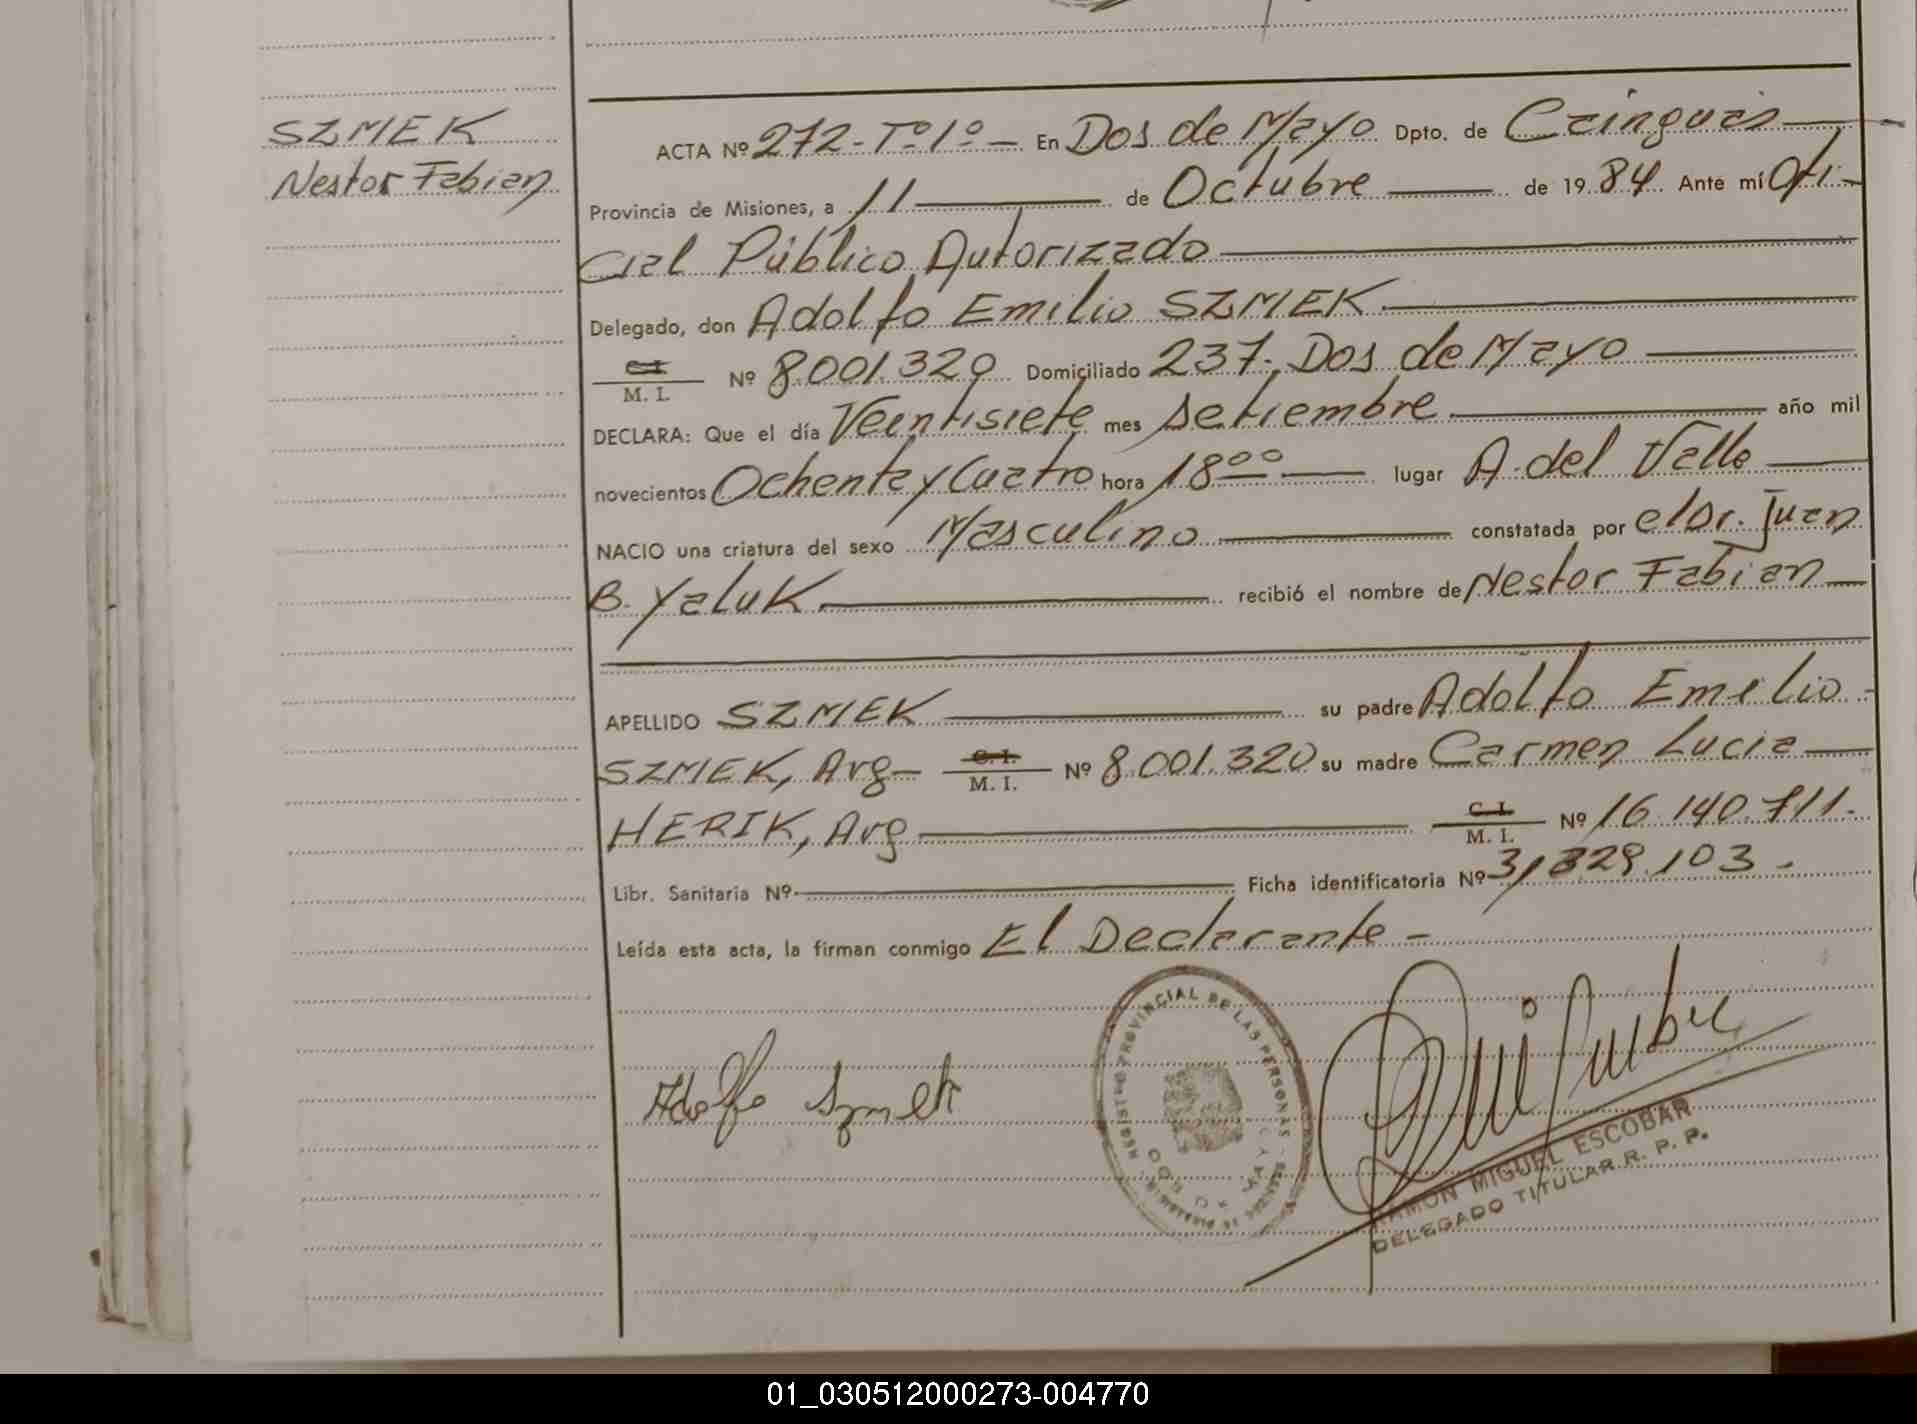 SZMEK
Nestor Fabian
ACTA Nº 272-Tº1º- En Dos de Mayo Dpto. de Cainguás
Provincia de Misiones, a 11 de Octubre de 1984 Ante mí Ofi-
cial Público Autorizado
Delegado, don Adolfo Emilio SZMEK
C.I. M. I. Nº 8.001.320 Domiciliado 237. Dos de Mayo
DECLARA: Que el día Veintisiete mes Setiembre año mil
novecientos Ochenta y Cuatro hora 18⁰⁰ lugar A. del Valle
NACIO una criatura del sexo Masculino constatada por el Dr. Juan
B. Yaluk recibió el nombre de Nestor Fabian
APELLIDO SZMEK su padre Adolfo Emilio
SZMEK, Arg- C.I. M. I. Nº 8.001.320 su madre Carmen Lucia
HERIK, Arg C.I. M. I. Nº 16.140.711.
Libr. Sanitaria Nº Ficha identificatoria Nº 31,329.103.
Leída esta acta, la firman conmigo El Declarante -
Adolfo Szmek
REGISTRO PROVINCIAL DE LAS PERSONAS
RAMON MIGUEL ESCOBAR
DELEGADO TITULAR R. P. P.
01_030512000273-004770